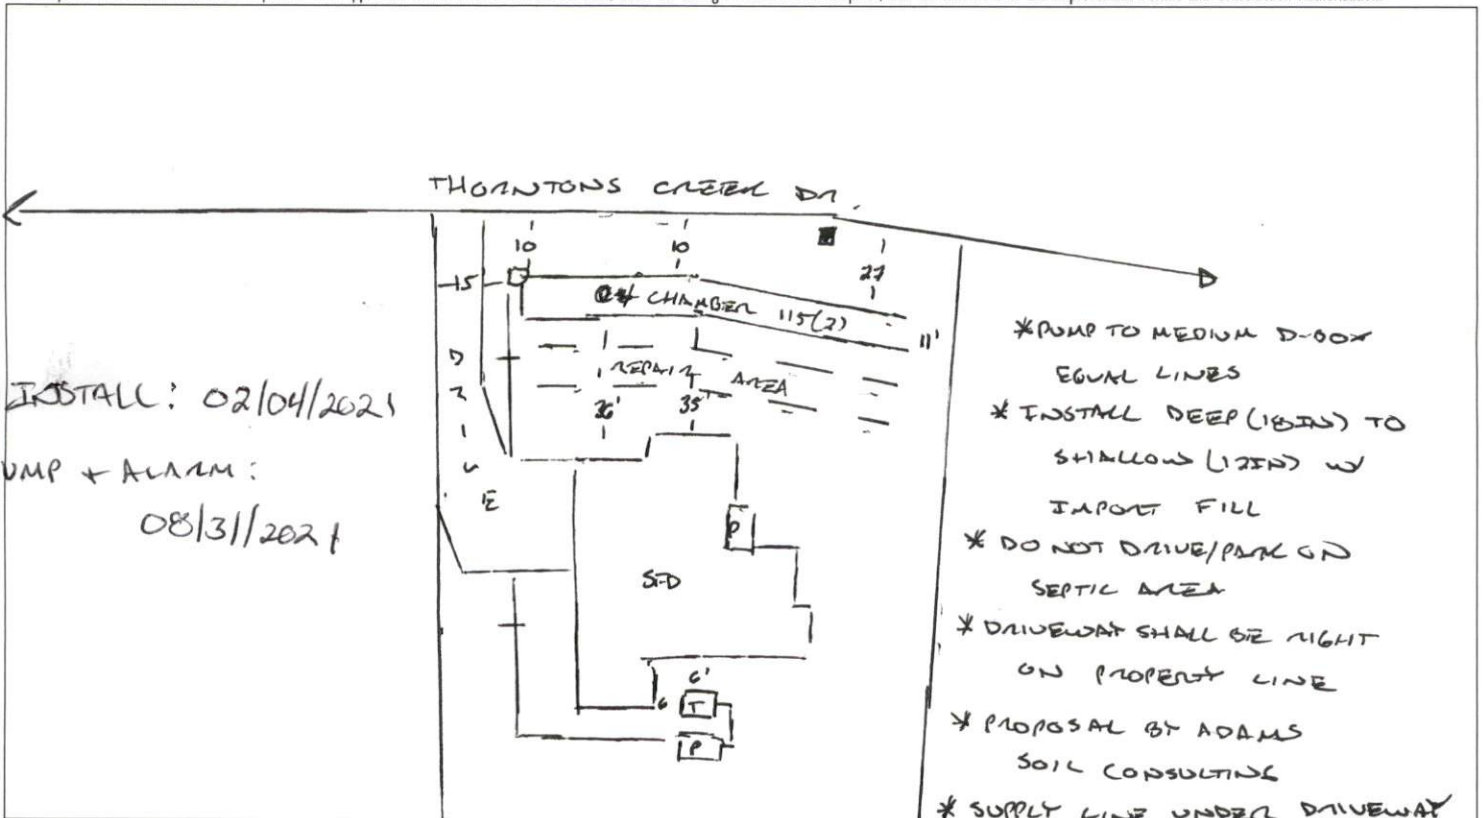 THORNTONS CREEK DR.
10 10
27
15
CHAMBER 115(2)
11'
DRIVE
REPAIR AREA
36' 35'
P
SFD
6'
6 T
P
INSTALL: 02/04/2021
UMP + ALARM:
08/31/2021
*PUMP TO MEDIUM D-BOX
EQUAL LINES
* INSTALL DEEP (18IN) TO
SHALLOW (12IN) W/
IMPORT FILL
* DO NOT DRIVE/PARK ON
SEPTIC AREA
* DRIVEWAY SHALL BE RIGHT
ON PROPERTY LINE
* PROPOSAL BY ADAMS
SOIL CONSULTING
* SUPPLY LINE UNDER DRIVEWAY